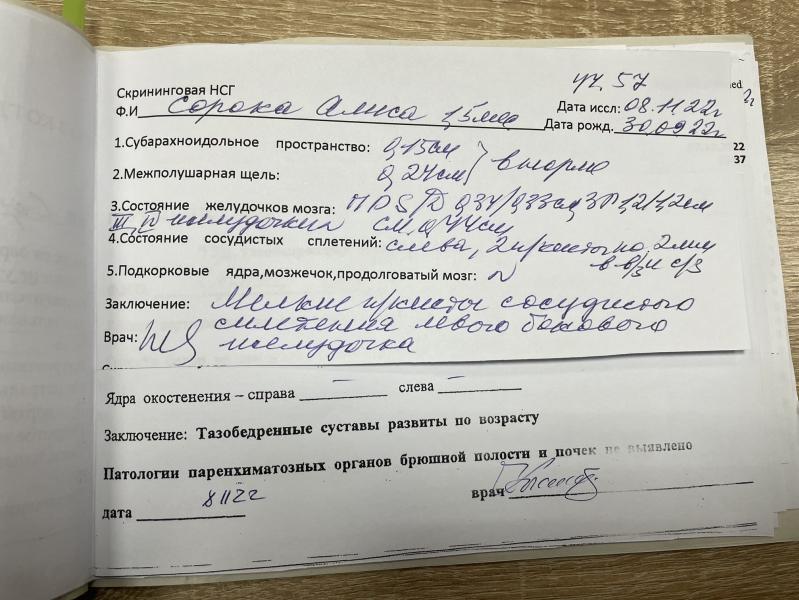 уч. 57
Скрининговая НСГ
Ф.И Сорока Алиса 1,5мес Дата иссл: 08.11.22г
Дата рожд. 30.09.22г
1.Субарахноидольное пространство: 0,15см
22
37
2.Межполушарная щель: 0,24см } в норме
3.Состояние желудочков мозга: ПРБ/Д 0,34/0,33см, ЗР 1,2/1,2см
III, IV желудочки см, 0,44см
4.Состояние сосудистых сплетений: слева, 2 п/кисты по 2мм
в в/з и с/з
5.Подкорковые ядра,мозжечок,продолговатый мозг: N
Заключение: Мелкие п/кисты сосудистого
сплетения левого бокового
Врач: желудочка
Ядра окостенения – справа – слева –
Заключение: Тазобедренные суставы развиты по возрасту
Патологии паренхиматозных органов брюшной полости и почек не выявлено
дата 8 11 22 врач